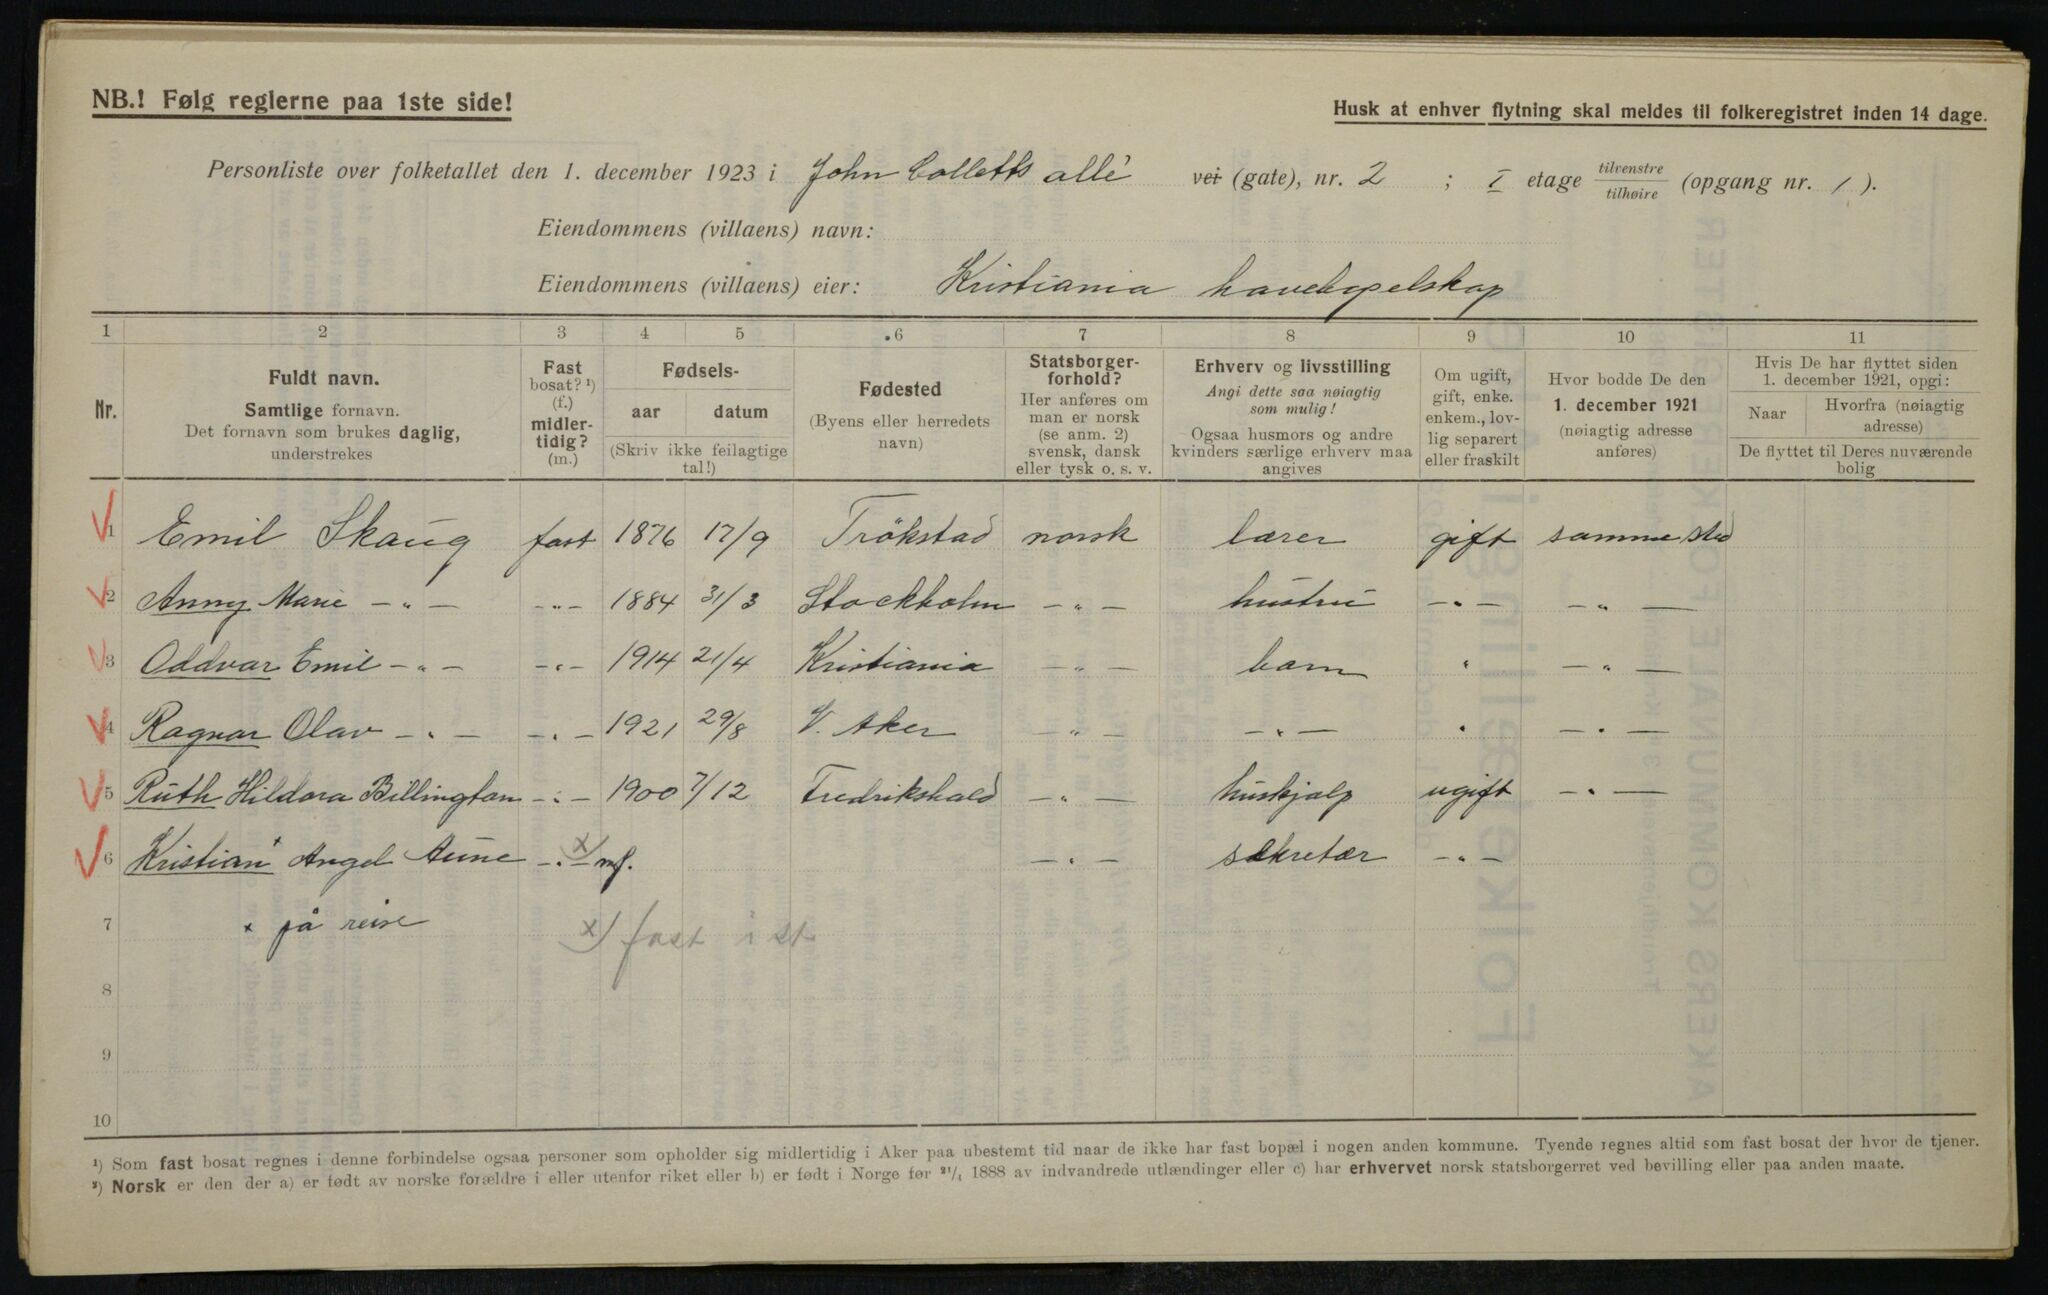 NB.! Følg reglerne paa 1ste side!
Husk at enhver flytning skal meldes til folkeregistret inden 14 dage.
Personliste over folketallet den 1. december 1923 i John Colletts allé vei (gate), nr. 2 ; I etage tilvenstre tilhøire (opgang nr. 1 ).
Eiendommens (villaens) navn:
Eiendommens (villaens) eier: Kristiania haveboselskap
1 2 3 4 5 6 7 8 9 10 11
Nr.
Fuldt navn.
Samtlige fornavn.
Det fornavn som brukes daglig,
understrekes
Fast
bosat? ¹)
(f.)
midler-
tidig?
(m.)
Fødsels-
aar datum
(Skriv ikke feilagtige
tal!)
Fødested
(Byens eller herredets
navn)
Statsborger-
forhold?
Her anføres om
man er norsk
(se anm. 2)
svensk, dansk
eller tysk o. s. v.
Erhverv og livsstilling
Angi dette saa nøiagtig
som mulig!
Ogsaa husmors og andre
kvinders særlige erhverv maa
angives
Om ugift,
gift, enke.
enkem., lov-
lig separert
eller fraskilt
Hvor bodde De den
1. december 1921
(nøiagtig adresse
anføres)
Hvis De har flyttet siden
1. december 1921, opgi:
Naar
Hvorfra (nøiagtig
adresse)
De flyttet til Deres nuværende
bolig
1 Emil Skaug fast 1876 17/9 Trökstad norsk lærer gift samme sted
2 Anny Marie – " – – " – 1884 31/3 Stockholm – " – hustru – " – – " –
3 Oddvar Emil – " – – " – 1914 21/4 Kristiania – " – barn " – " –
4 Ragnar Olav – " – – " – 1921 29/8 V. Aker – " – – " – " – " –
5 Ruth Hildora Billington – " – 1900 7/12 Fredrikshald – " – huskjælp ugift – " –
6 Kristian x Angel Aune – " – x) mf. – " – sekretær – " –
7 x på reise x) fast i st
8
9
10
¹) Som fast bosat regnes i denne forbindelse ogsaa personer som opholder sig midlertidig i Aker paa ubestemt tid naar de ikke har fast bopæl i nogen anden kommune. Tyende regnes altid som fast bosat der hvor de tjener.
²) Norsk er den der a) er født av norske forældre i eller utenfor riket eller b) er født i Norge før ²¹/₄ 1888 av indvandrede utlændinger eller c) har erhvervet norsk statsborgerret ved bevilling eller paa anden maate.